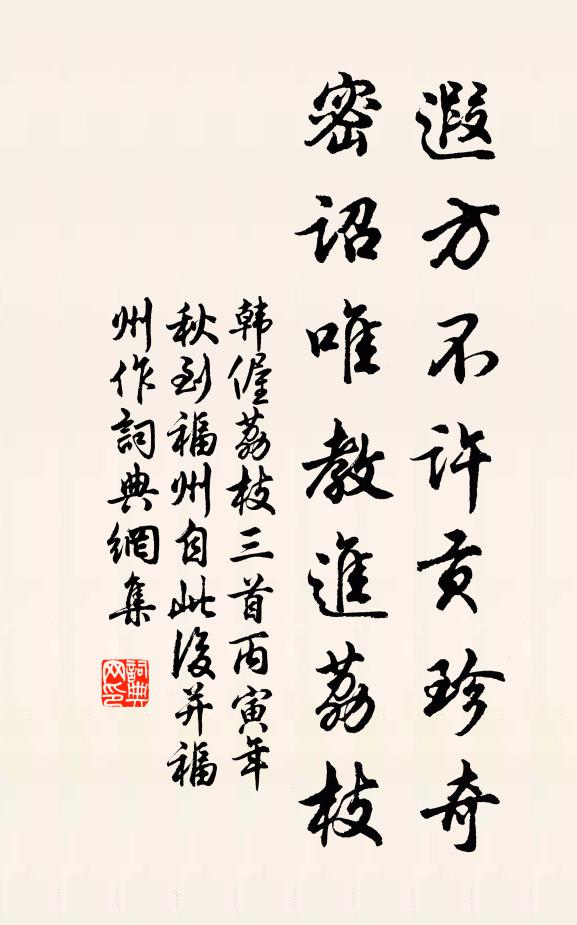 遐方不許貢珍奇
密詔唯教進荔枝
韩偓荔枝三首丙寅年
秋到福州自此後并福
州作詞典網集
詞典網印